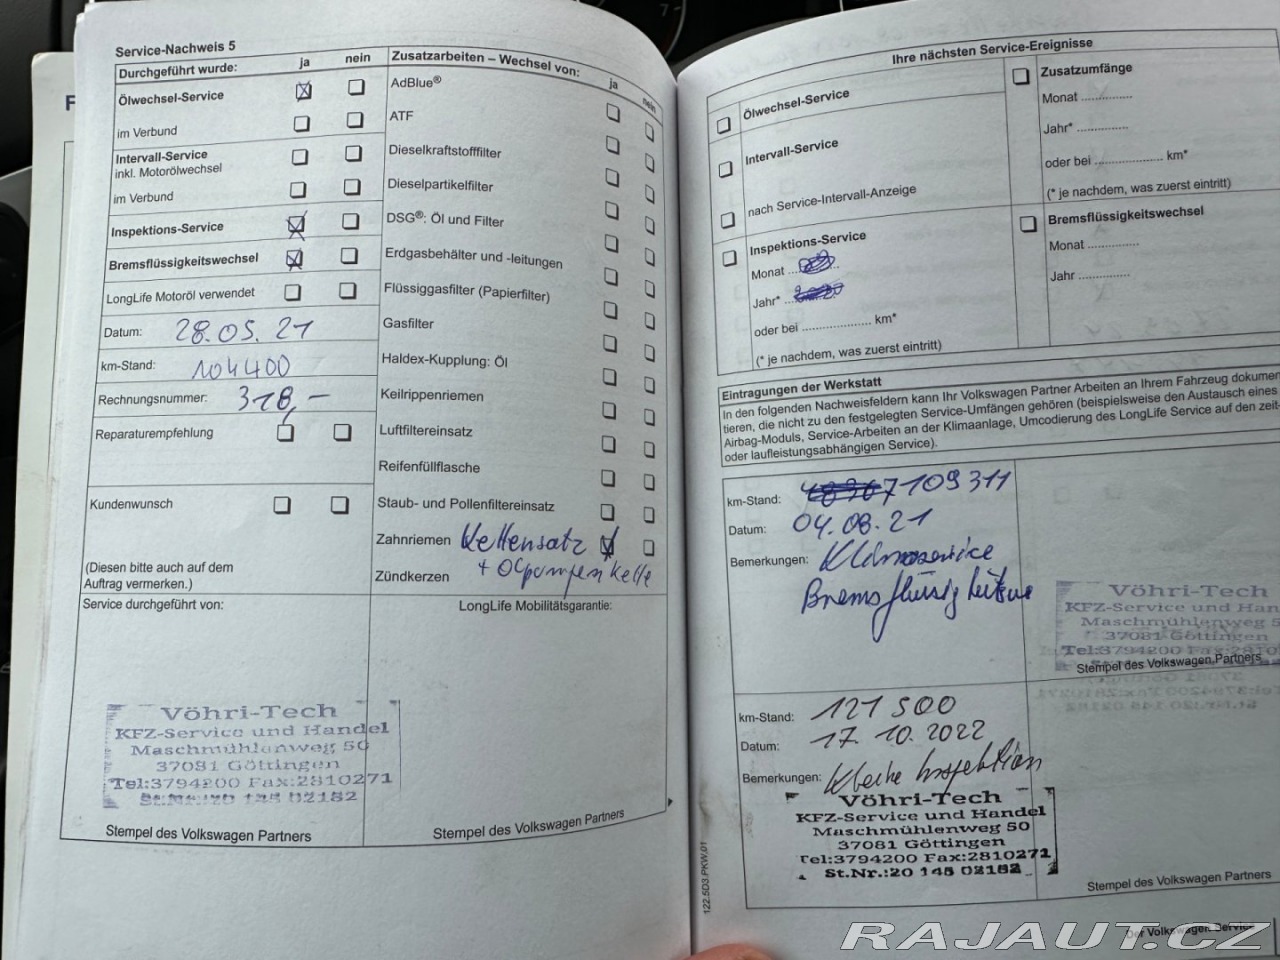 Service-Nachweis 5
Durchgeführt wurde: ja nein
Ölwechsel-Service
im Verbund
Intervall-Service
inkl. Motorölwechsel
im Verbund
Inspektions-Service
Bremsflüssigkeitswechsel
LongLife Motoröl verwendet
Datum: 28.05.21
km-Stand: 104400
Rechnungsnummer: 318,-
Reparaturempfehlung
Kundenwunsch
(Diesen bitte auch auf dem
Auftrag vermerken.)
Service durchgeführt von:
Vöhri-Tech
KFZ-Service und Handel
Maschmühlenweg 50
37081 Göttingen
Tel:3794200 Fax:2810271
St.Nr.:20 145 02182
Stempel des Volkswagen Partners
Zusatzarbeiten – Wechsel von: ja nein
AdBlue®
ATF
Dieselkraftstofffilter
Dieselpartikelfilter
DSG®: Öl und Filter
Erdgasbehälter und -leitungen
Flüssiggasfilter (Papierfilter)
Gasfilter
Haldex-Kupplung: Öl
Keilrippenriemen
Luftfiltereinsatz
Reifenfüllflasche
Staub- und Pollenfiltereinsatz
Zahnriemen Kettensatz
Zündkerzen + Ölpumpenkette
LongLife Mobilitätsgarantie:
Stempel des Volkswagen Partners
Ihre nächsten Service-Ereignisse
Ölwechsel-Service
Intervall-Service
nach Service-Intervall-Anzeige
Inspektions-Service
Monat
Jahr*
oder bei .................... km*
(* je nachdem, was zuerst eintritt)
Zusatzumfänge
Monat ..............
Jahr* ..............
oder bei .................... km*
(* je nachdem, was zuerst eintritt)
Bremsflüssigkeitswechsel
Monat ..............
Jahr ..............
Eintragungen der Werkstatt
In den folgenden Nachweisfeldern kann Ihr Volkswagen Partner Arbeiten an Ihrem Fahrzeug dokumen-
tieren, die nicht zu den festgelegten Service-Umfängen gehören (beispielsweise den Austausch eines
Airbag-Moduls, Service-Arbeiten an der Klimaanlage, Umcodierung des LongLife Service auf den zeit-
oder laufleistungsabhängigen Service).
km-Stand: 109311
Datum: 04.08.21
Bemerkungen: Klimaservice
Bremsflüssigkeitswe
Vöhri-Tech
KFZ-Service und Han
Maschmühlenweg 5
37081 Göttingen
Tel:3794200 Fax:2810
Stempel des Volkswagen Partners
km-Stand: 121500
Datum: 17.10.2022
Bemerkungen: Kleine Inspektion
Vöhri-Tech
KFZ-Service und Handel
Maschmühlenweg 50
37081 Göttingen
Tel:3794200 Fax:2810271
St.Nr.:20 145 02182
Stempel des Volkswagen Partners
122.5D3.PKW.01
Der Volkswagen Service
RAJAUT.CZ